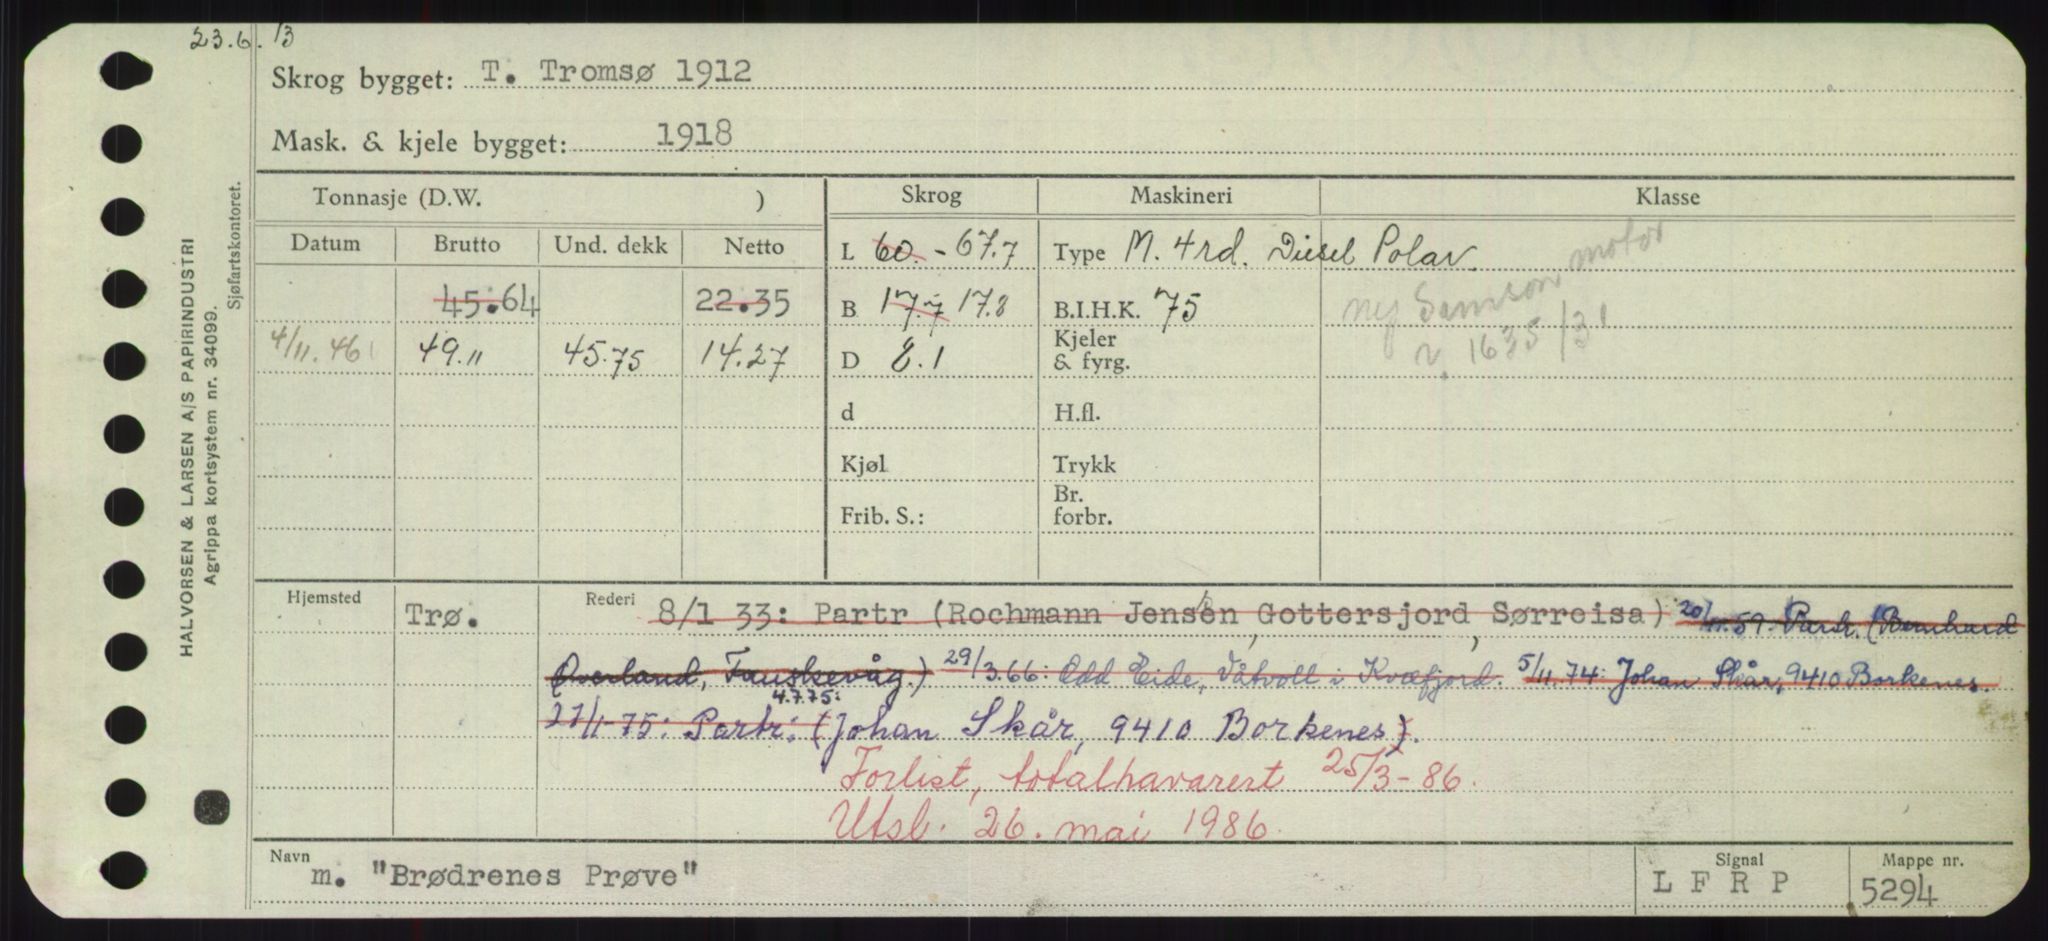 23.6.13
Skrog bygget: T. Tromsø 1912
Mask. & kjele bygget: 1918
Tonnasje (D.W. ) Skrog Maskineri Klasse
Datum Brutto Und. dekk Netto L 60.- 67.7 Type M. 4rd. Diesel Polar
45.64 22.35 B 17.7 17.8 B.I.H.K. 75 Ny Samson motor
4/11.46 49.11 45.75 14.27 D 8.1 Kjeler & fyrg. 1635/31
d H.fl.
Kjøl Trykk
Frib. S.: Br. forbr.
Hjemsted Trø. Rederi 8/1 33: Partr (Rochmann Jensen, Gottersjord, Sørreisa) 20/11.59: Partr. (Bernhard
Øverland, Fauskevåg.) 29/3.66: Odd Eide, Våtvoll i Kvæfjord. 5/11.74: Johan Skår, 9410 Borkenes.
4.7.75:
27/1-75: Partr: (Johan Skår, 9410 Borkenes).
Forlist, totalhavarert 25/3-86.
Utsl. 26. mai 1986.
Navn m. "Brødrenes Prøve" Signal L F R P Mappe nr. 5294
HALVORSEN & LARSEN A/S PAPIRINDUSTRI
Agrippa kortsystem nr. 34099.
Sjøfartskontoret.